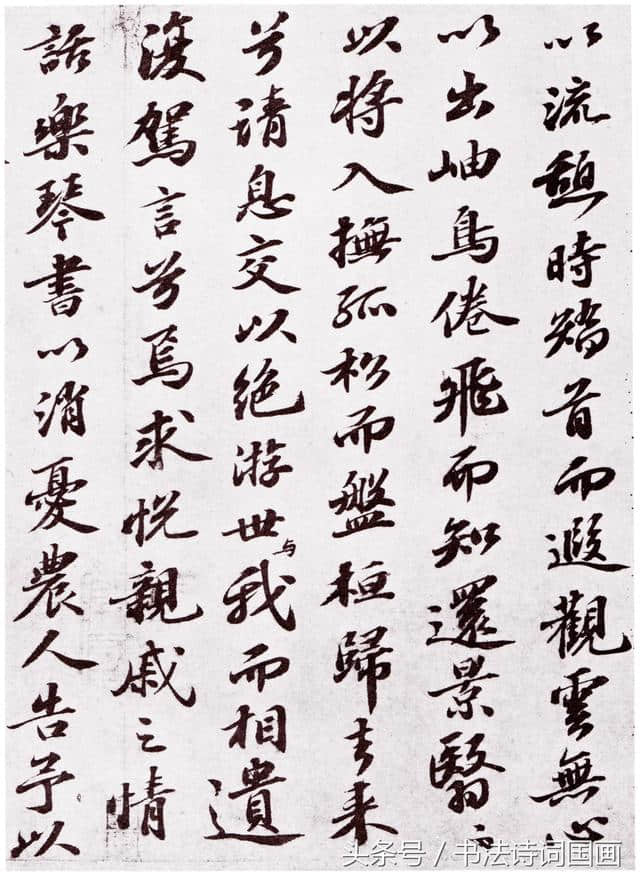 以流憩時矯首而遐觀雲無心
以出岫鳥倦飛而知還景翳々
以将入撫孤松而盤桓歸去来
兮請息交以絕游世与我而相遺
復駕言兮焉求悅親戚之情
話樂琴書以消憂農人告予以
头条号／书法诗词国画